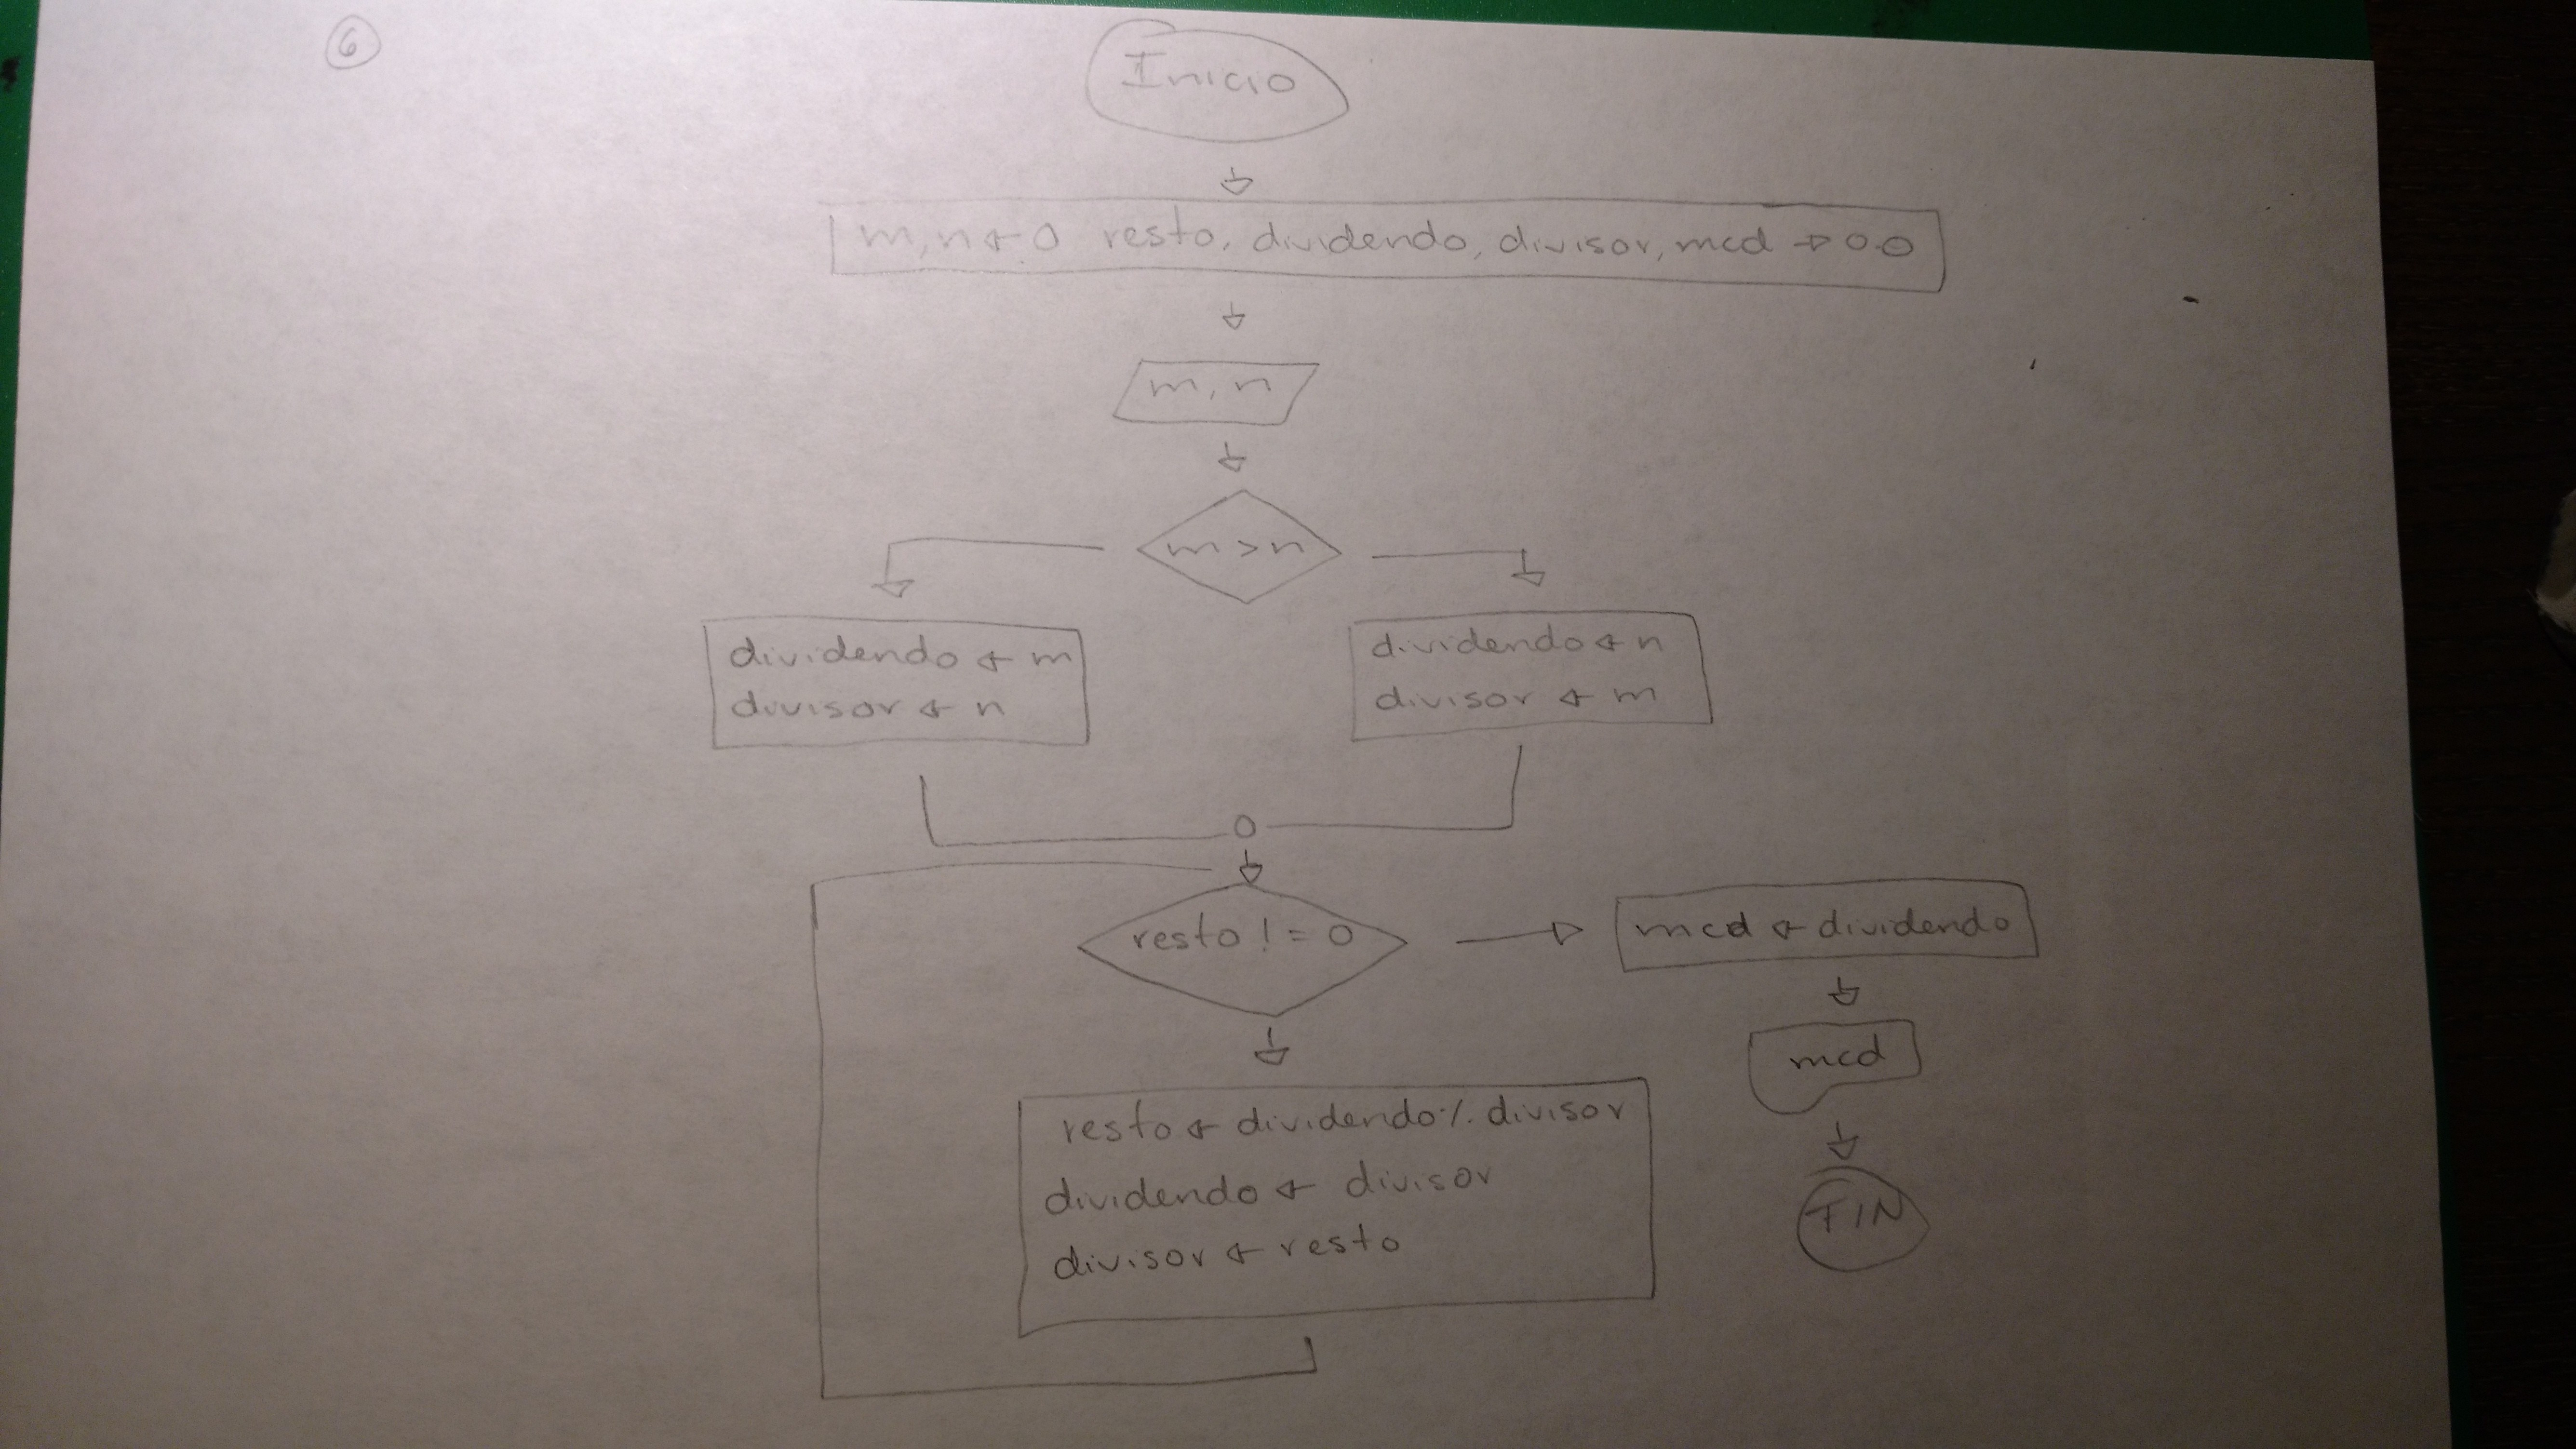 6
Inicio
m, n ← 0 resto, dividendo, divisor, mcd → 0.0
m, n
m > n
dividendo ← m
divisor ← n
dividendo ← n
divisor ← m
resto != 0
mcd ← dividendo
mcd
FIN
resto ← dividendo % divisor
dividendo ← divisor
divisor ← resto